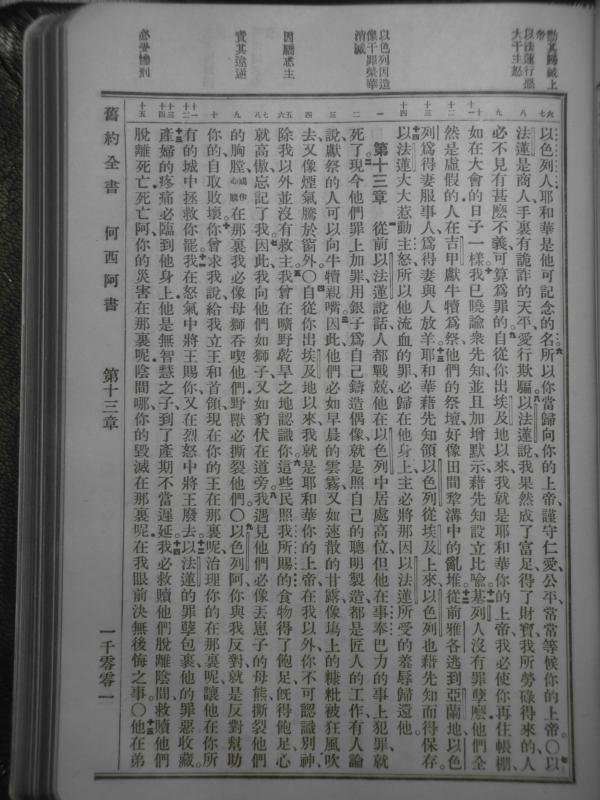 勸其歸誠上
帝
以法蓮行惡
大干主怒
以色列因造
像干罪榮華
消滅
因驕忘主
責其違逆
必受慘刑
以色列人耶和華是他可記念的名所以你當歸向你的上帝謹守仁愛公平常常等候你的上帝〇以
法蓮是商人手裏有詭詐的天平愛行欺騙以法蓮說我果然成了富足得了財寶我所勞碌得來的人
必不見有甚麽不義可算爲罪的自從你出埃及地以來我就是耶和華你的上帝我必使你再住帳棚
如在大會的日子一樣我已曉諭衆先知並且加增默示藉先知設立比喻基列人沒有罪孽麽他們全
然是虛假的人在吉甲獻牛犢爲祭他們的祭壇好像田間犁溝中的亂堆從前雅各逃到亞蘭地以色
列爲得妻服事人爲得妻與人放羊耶和華藉先知領以色列從埃及上來以色列也藉先知而得保存
以法蓮大大惹動主怒所以他流血的罪必歸在他身上主必將那因以法蓮所受的羞辱歸還他
第十三章 從前以法蓮說話人都戰兢他在以色列中居處高位但他在事奉巴力的事上犯罪就
死了現今他們罪上加罪用銀子爲自己鑄造偶像就是照自己的聰明製造都是匠人的工作有人論
說獻祭的人可以向牛犢親嘴因此他們必如早晨的雲霧又如速散的甘露像場上的糠粃被狂風吹
去又像煙氣騰於窗外〇自從你出埃及地以來我就是耶和華你的上帝在我以外你不可認識別神
除我以外並沒有救主我曾在曠野乾旱之地認識你這些民照我所賜的食物得了飽足旣得飽足心
就高傲忘記了我因此我向他們如獅子又如豹伏在道旁我遇見他們必像丟崽子的母熊撕裂他們
的胸膛在那裏我必像母獅吞喫他們野獸必撕裂他們〇以色列阿你與我反對就是反對幫助
你的自取敗壞你曾求我說給我立王和首領現在你的王在那裏呢治理你的在那裏呢讓他在你所
有的城中拯救你罷我在怒氣中將王賜你又在烈怒中將王廢去以法蓮的罪孽包裹他的罪惡收藏
產婦的疼痛必臨到他身上他是無智慧之子到了產期不當遲延我必救贖他們脫離陰間救贖他們
脫離死亡死亡阿你的災害在那裏呢陰間哪你的毀滅在那裏呢在我眼前決無後悔之事〇他在弟
舊約全書 何西阿書 第十三章 一千零零一